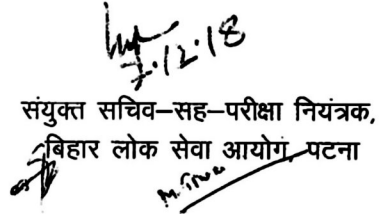 7.12.18
संयुक्त सचिव–सह–परीक्षा नियंत्रक,
बिहार लोक सेवा आयोग, पटना